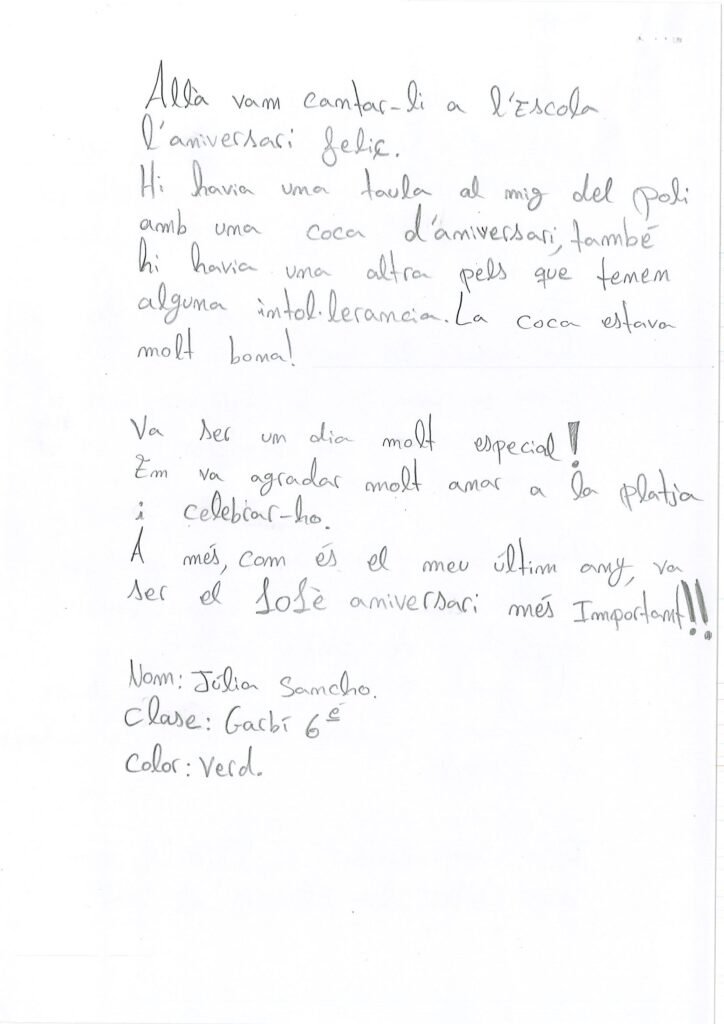 Allà vam cantar-li a l'Escola
l'aniversari feliç.
Hi havia una taula al mig del poli
amb una coca d'aniversari, també
hi havia una altra pels que tenem
alguna intol·lerancia. La coca estava
molt bona!
Va ser un dia molt especial!
Em va agradar molt anar a la platja
i celebrar-ho.
A més, com és el meu últim any, va
ser el 101è aniversari més Important!!
Nom: Júlia Sancho.
Clase: Garbí 6è
Color: Verd.